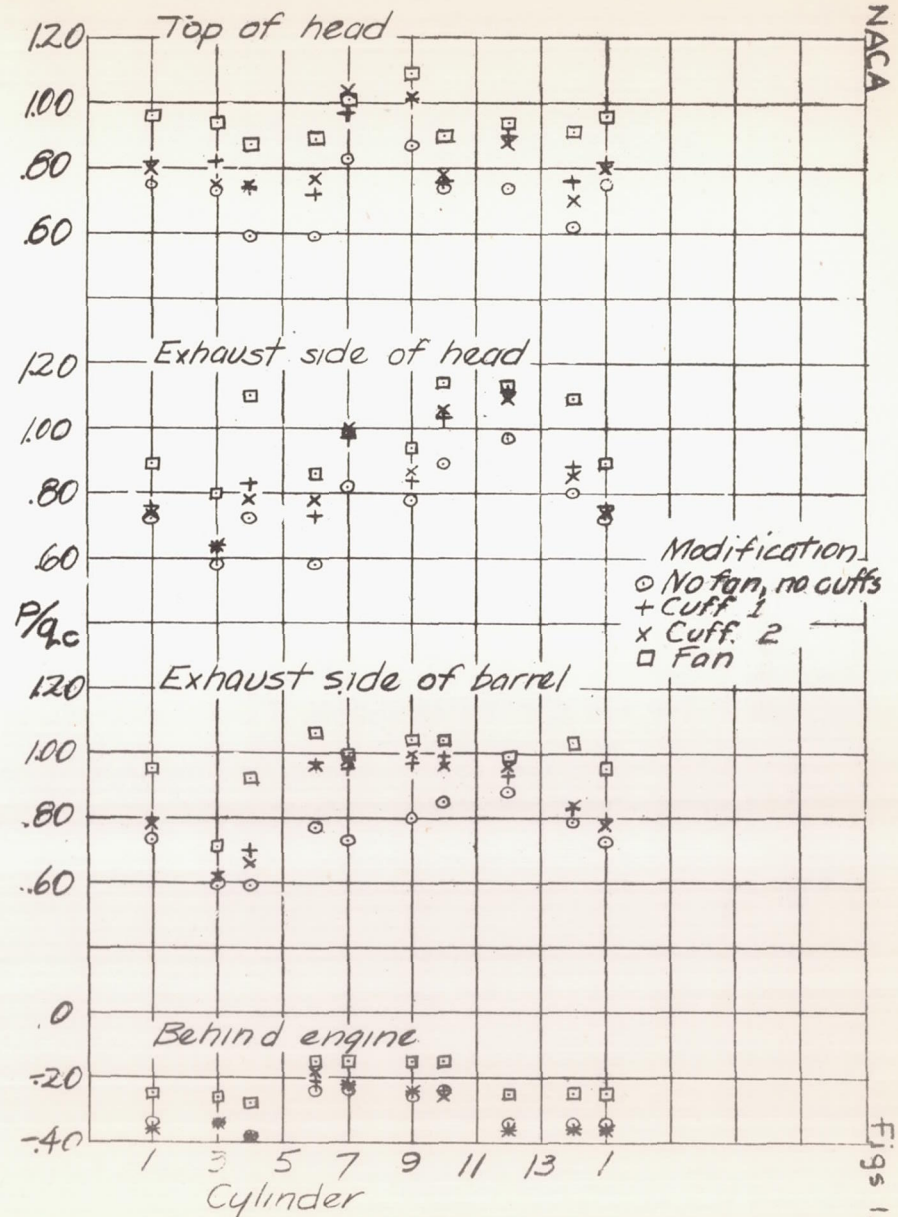 NACA
Figs 1
1.20 Top of head
1.00
.80
.60
1.20 Exhaust side of head
1.00
.80
.60
P/qc
Modification
⊙ No fan, no cuffs
+ Cuff 1
x Cuff. 2
□ Fan
1.20 Exhaust side of barrel
1.00
.80
.60
0
Behind engine
-.20
-.40
1 3 5 7 9 11 13 1
Cylinder